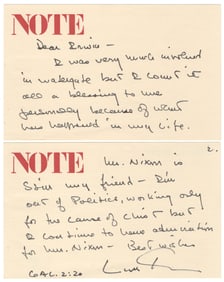 NOTE
Dear Erwin -
I was very much involved
in watergate but I count it
all a blessing to me
personally because of what
has happened in my life.
2.
NOTE
Mr. Nixon is
still my friend - I'm
out of Politics, working only
for the cause of Christ but
I continue to have admiration
for Mr. Nixon - Best wishes
GAL. 2:20